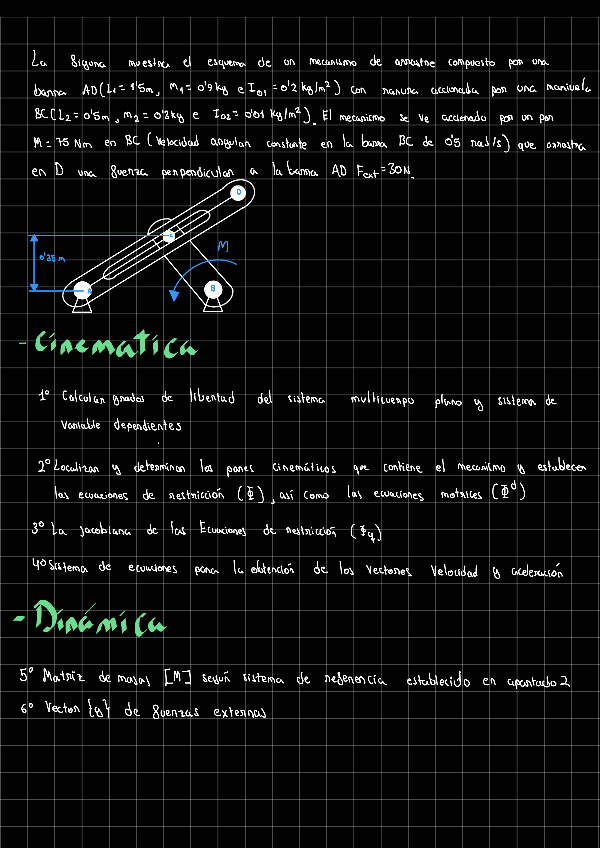 La figura muestra el esquema de un mecanismo de arrastre compuesto por una
barra AD (L₁ = 1'5m, m₁ = 0'9 kg e I_O1 = 0'2 kg/m²) con ranura accionada por una manivela
BC (L₂ = 0'5m, m₂ = 0'3kg e I_O2 = 0'01 kg/m²). El mecanismo se ve accionado por un par
M = 75 Nm en BC (Velocidad angular constante en la barra BC de 0'5 rad/s) que arrastra
en D una fuerza perpendicular a la barra AD F_ext = 30N.
D
C
M
0'35 m
A
B
- Cinematica
1º Calcular grados de libertad del sistema multicuerpo plano y sistema de
variable dependientes
2º Localizar y determinar los pares cinemáticos que contiene el mecanimo y establecer
las ecuaciones de restricción (Φ), así como las ecuaciones motrices (Φᵈ)
3º La jacobiana de las Ecuaciones de restricción (Φq)
4º Sistema de ecuaciones para la obtención de los vectores Velocidad y aceleración
- Dinámica
5º Matriz de masas [M] según sistema de referencia establecido en apartado 2
6º Vector {g} de fuerzas externas